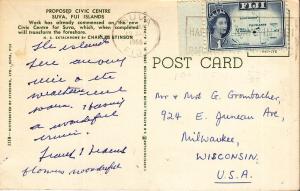 PROPOSED CIVIC CENTRE
SUVA, FIJI ISLANDS
Work has already commenced on the new
Civic Centre for Suva, which, when completed
will transform the foreshore.
N. S. EKTACHROME BY CHARLES STINSON
FIJI
POST CARD
The islands
here are very
nice & the
weather
warm. Having
a wonderful
cruise.
Flowers wonderful
Mr & Mrs G. Grombacher,
924 E. Juneau Ave,
Milwaukee,
WISCONSIN.
U.S.A.